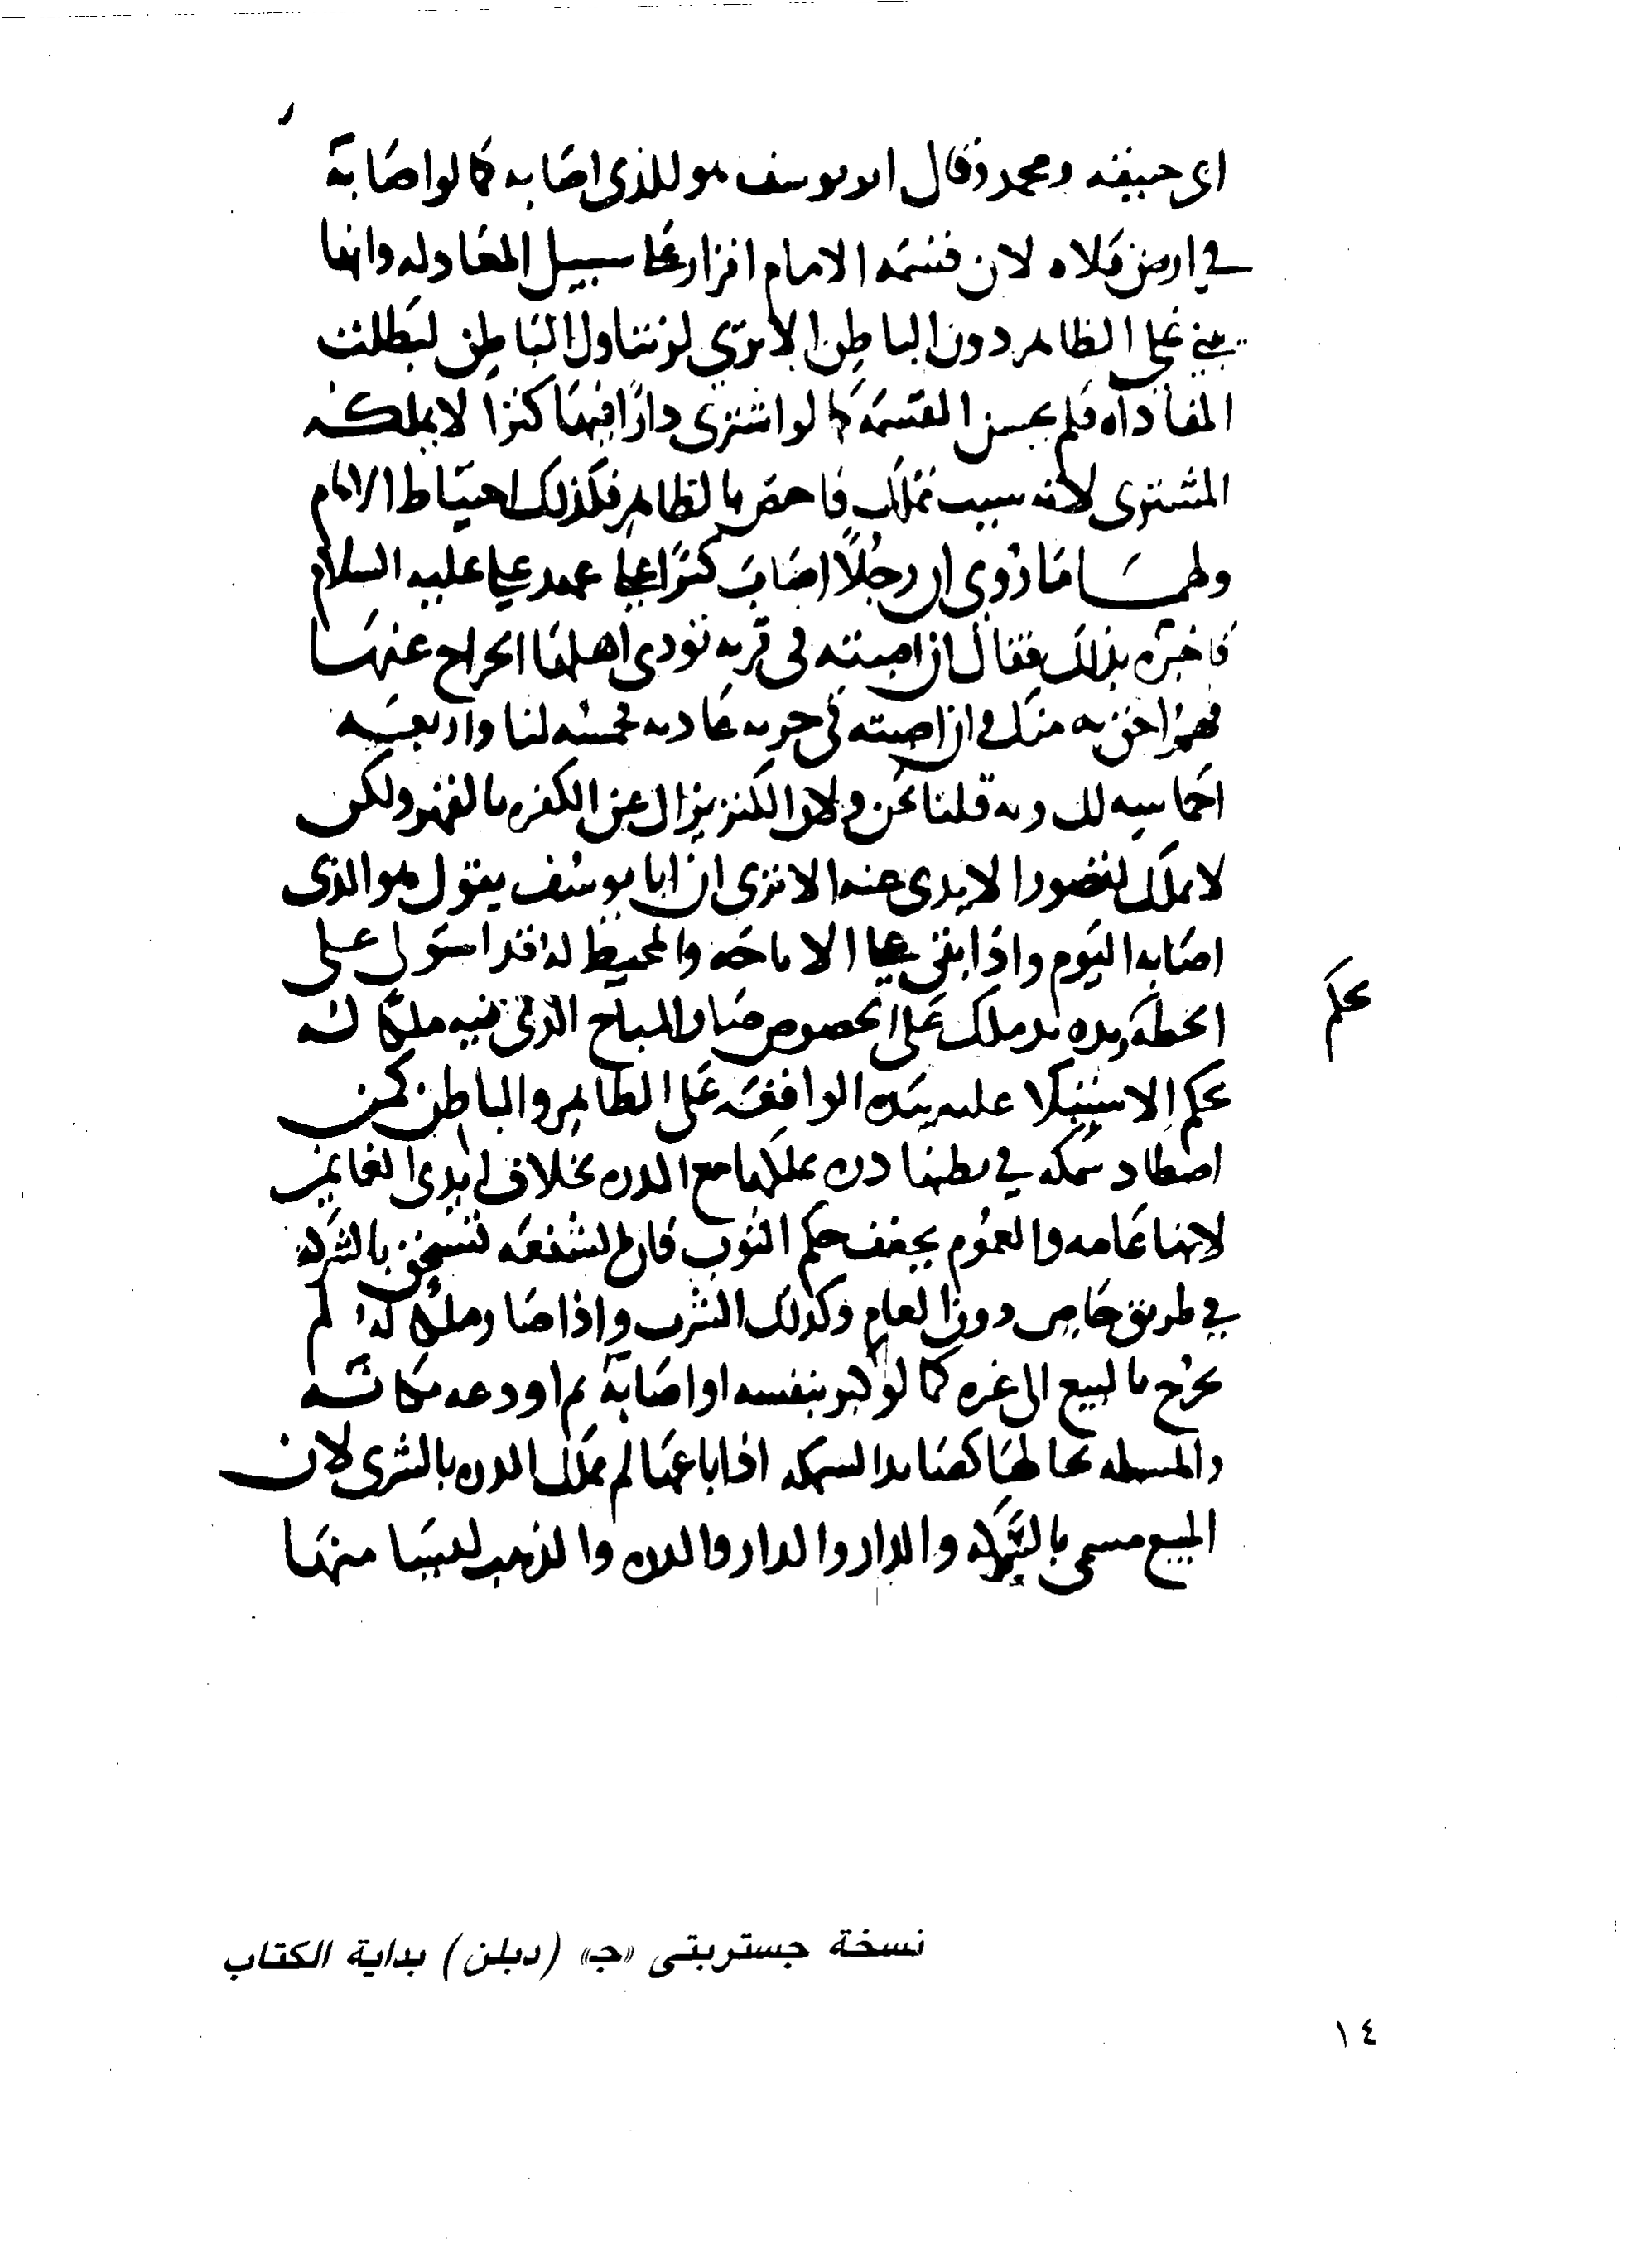 ابي حنيفه ومحمد وقال ابو يوسف هو للذي اصابه كما لو اصابه
في ارض فلاه لان قسمه الامام افراز على سبيل المعادله وانها
يبني على الظاهر دون الباطن الا تري لو تناول الباطن لبطلت
المعاداه فلم القسمه كما لو اشتري دارا فيها كنزا لا يملكه
المشتري لانه سبب تملك بالظاهر فكذلك احتياط الامام
ولهما ما روي ان رجلا اصاب كنزا على عهد علي عليه السلام
فاخبره بذلك فقال ان اصبته في قريه تودي اهلها الخراج عنها
فهم احق به منك وان اصبته في خربه عاديه فخمسه لنا واربعه
اخماسه لك وبه قلنا نحن ولان الكنز يزال عن الكفره بالقهر ولكن
لا يملك لقصور الايدي عنه الا تري ان ابا يوسف يقول هو الذي
اصابه اليوم واذا بقي على الاباحه والمحيط له قد استولى على
الخطه يده يد ملك على الخصوص صار المباح الذي فيه ملكا له
بحكم الاستيلا عليه بيده الواقعه على الظاهر والباطن كمن
اصطاد سمكه في بطنها دره يملكها مع الدره بخلاف ايدي الغانمين
لانها عامه والعموم يخفف حكم الثبوت فان الشفعه تستحق بالشركه
في طريق خاص دون العام وكذلك الشرب واذا صار ملكا له لم
يخرج بالبيع الى غيره كما لو بنفسه او اصابه ثم اودعه مكانه
والمسله بحالها كصايد السمكه اذا باعها لم يملك الدره بالشري لان
المبيع مسمى بالسمكه والدار والدار والدره والذهب ليسا منها
بحكم
نسخة جستربتى «ج» (دبلن) بداية الكتاب
١٤